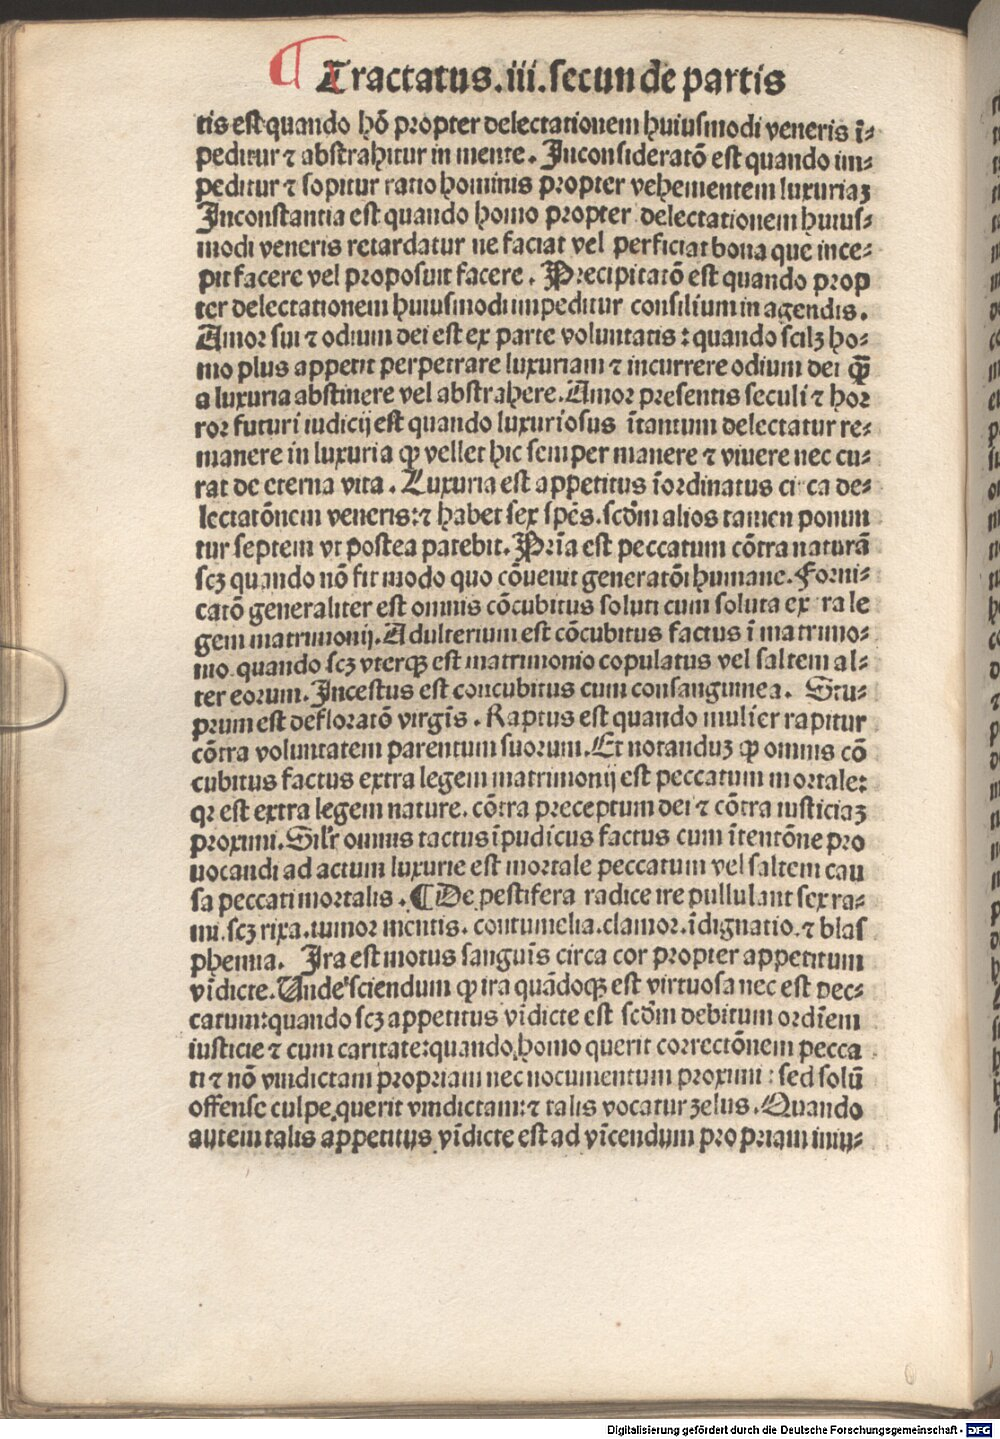 ¶ Tractatus.iii.secun de partis
tis est quando hō propter delectationem huiusmodi veneris ī⸗
peditur ⁊ abstrahitur in mente. Inconsideratō est quando im⸗
peditur ⁊ sopitur ratio hominis propter vehementem luxuriaꝫ
Inconstantia est quando homo propter delectationem huius⸗
modi veneris retardatur ne faciat vel perficiat bona que ince⸗
pit facere vel proposuit facere. Precipitatō est quando prop
ter delectationem huiusmodi impeditur consilium in agendis.
Amor sui ⁊ odium dei est ex parte voluntatis: quando scilꝫ ho⸗
mo plus appetit perpetrare luxuriam ⁊ incurrere odium dei ꝙ̄
a luxuria abstinere vel abstrahere. Amor presentis seculi ⁊ hor
ror futuri iudicij est quando luxuriosus ītantum delectatur re⸗
manere in luxuria ꝙ vellet hic semper manere ⁊ viuere nec cu⸗
rat de eterna vita. Luxuria est appetitus īordinatus ci ca de⸗
lectatōnem veneris: ⁊ habet sex spēs. scd̄m alios tamen ponun
tur septem vt postea patebit. Prīa est peccatum cōtra naturā
scꝫ quando nō fit modo quo cōuenit generatōi humane. Forni⸗
catō generaliter est omnis cōcubitus soluti cum soluta ex ra le
gem matrimonij. Adulterium est cōcubitus factus ī matrimo⸗
nio quando scꝫ vterqꝫ est matrimonio copulatus vel saltem al⸗
ter eorum. Incestus est concubitus cum consanguinea. Stu⸗
prum est defloratō virgīs. Raptus est quando mulier rapitur
cōtra voluntatem parentum suorum. Et notanduꝫ ꝙ omnis cō
cubitus factus extra legem matrimonij est peccatum mortale:
qꝛ est extra legem nature. cōtra preceptum dei ⁊ cōtra iusticiaꝫ
proximi. Silr̄ omnis tactus īpudicus factus cum ītentōne pro
uocandi ad actum luxurie est mortale peccatum vel saltem cau
sa peccati mortalis. ¶ De pestifera radice ire pullulant sex ra⸗
mi. scꝫ rixa. tumor mentis. contumelia. clamor. īdignatio. ⁊ blas
phemia. Ira est motus sanguīs circa cor propter appetitum
vīdicte. Unde sciendum ꝙ ira quādoqꝫ est virtuosa nec est pec⸗
catum: quando scꝫ appetitus vīdicte est scd̄m debitum ordīem
iusticie ⁊ cum caritate: quando homo querit correctōnem pecca
ti ⁊ nō vindictam propriam nec nocumentum proximi: sed solū
offense culpe querit vindictam: ⁊ talis vocatur ꝫelus. Quando
autem talis appetitus vīdicte est ad vīcendum propriam iniu⸗
Digitalisierung gefördert durch die Deutsche Forschungsgemeinschaft - DFG